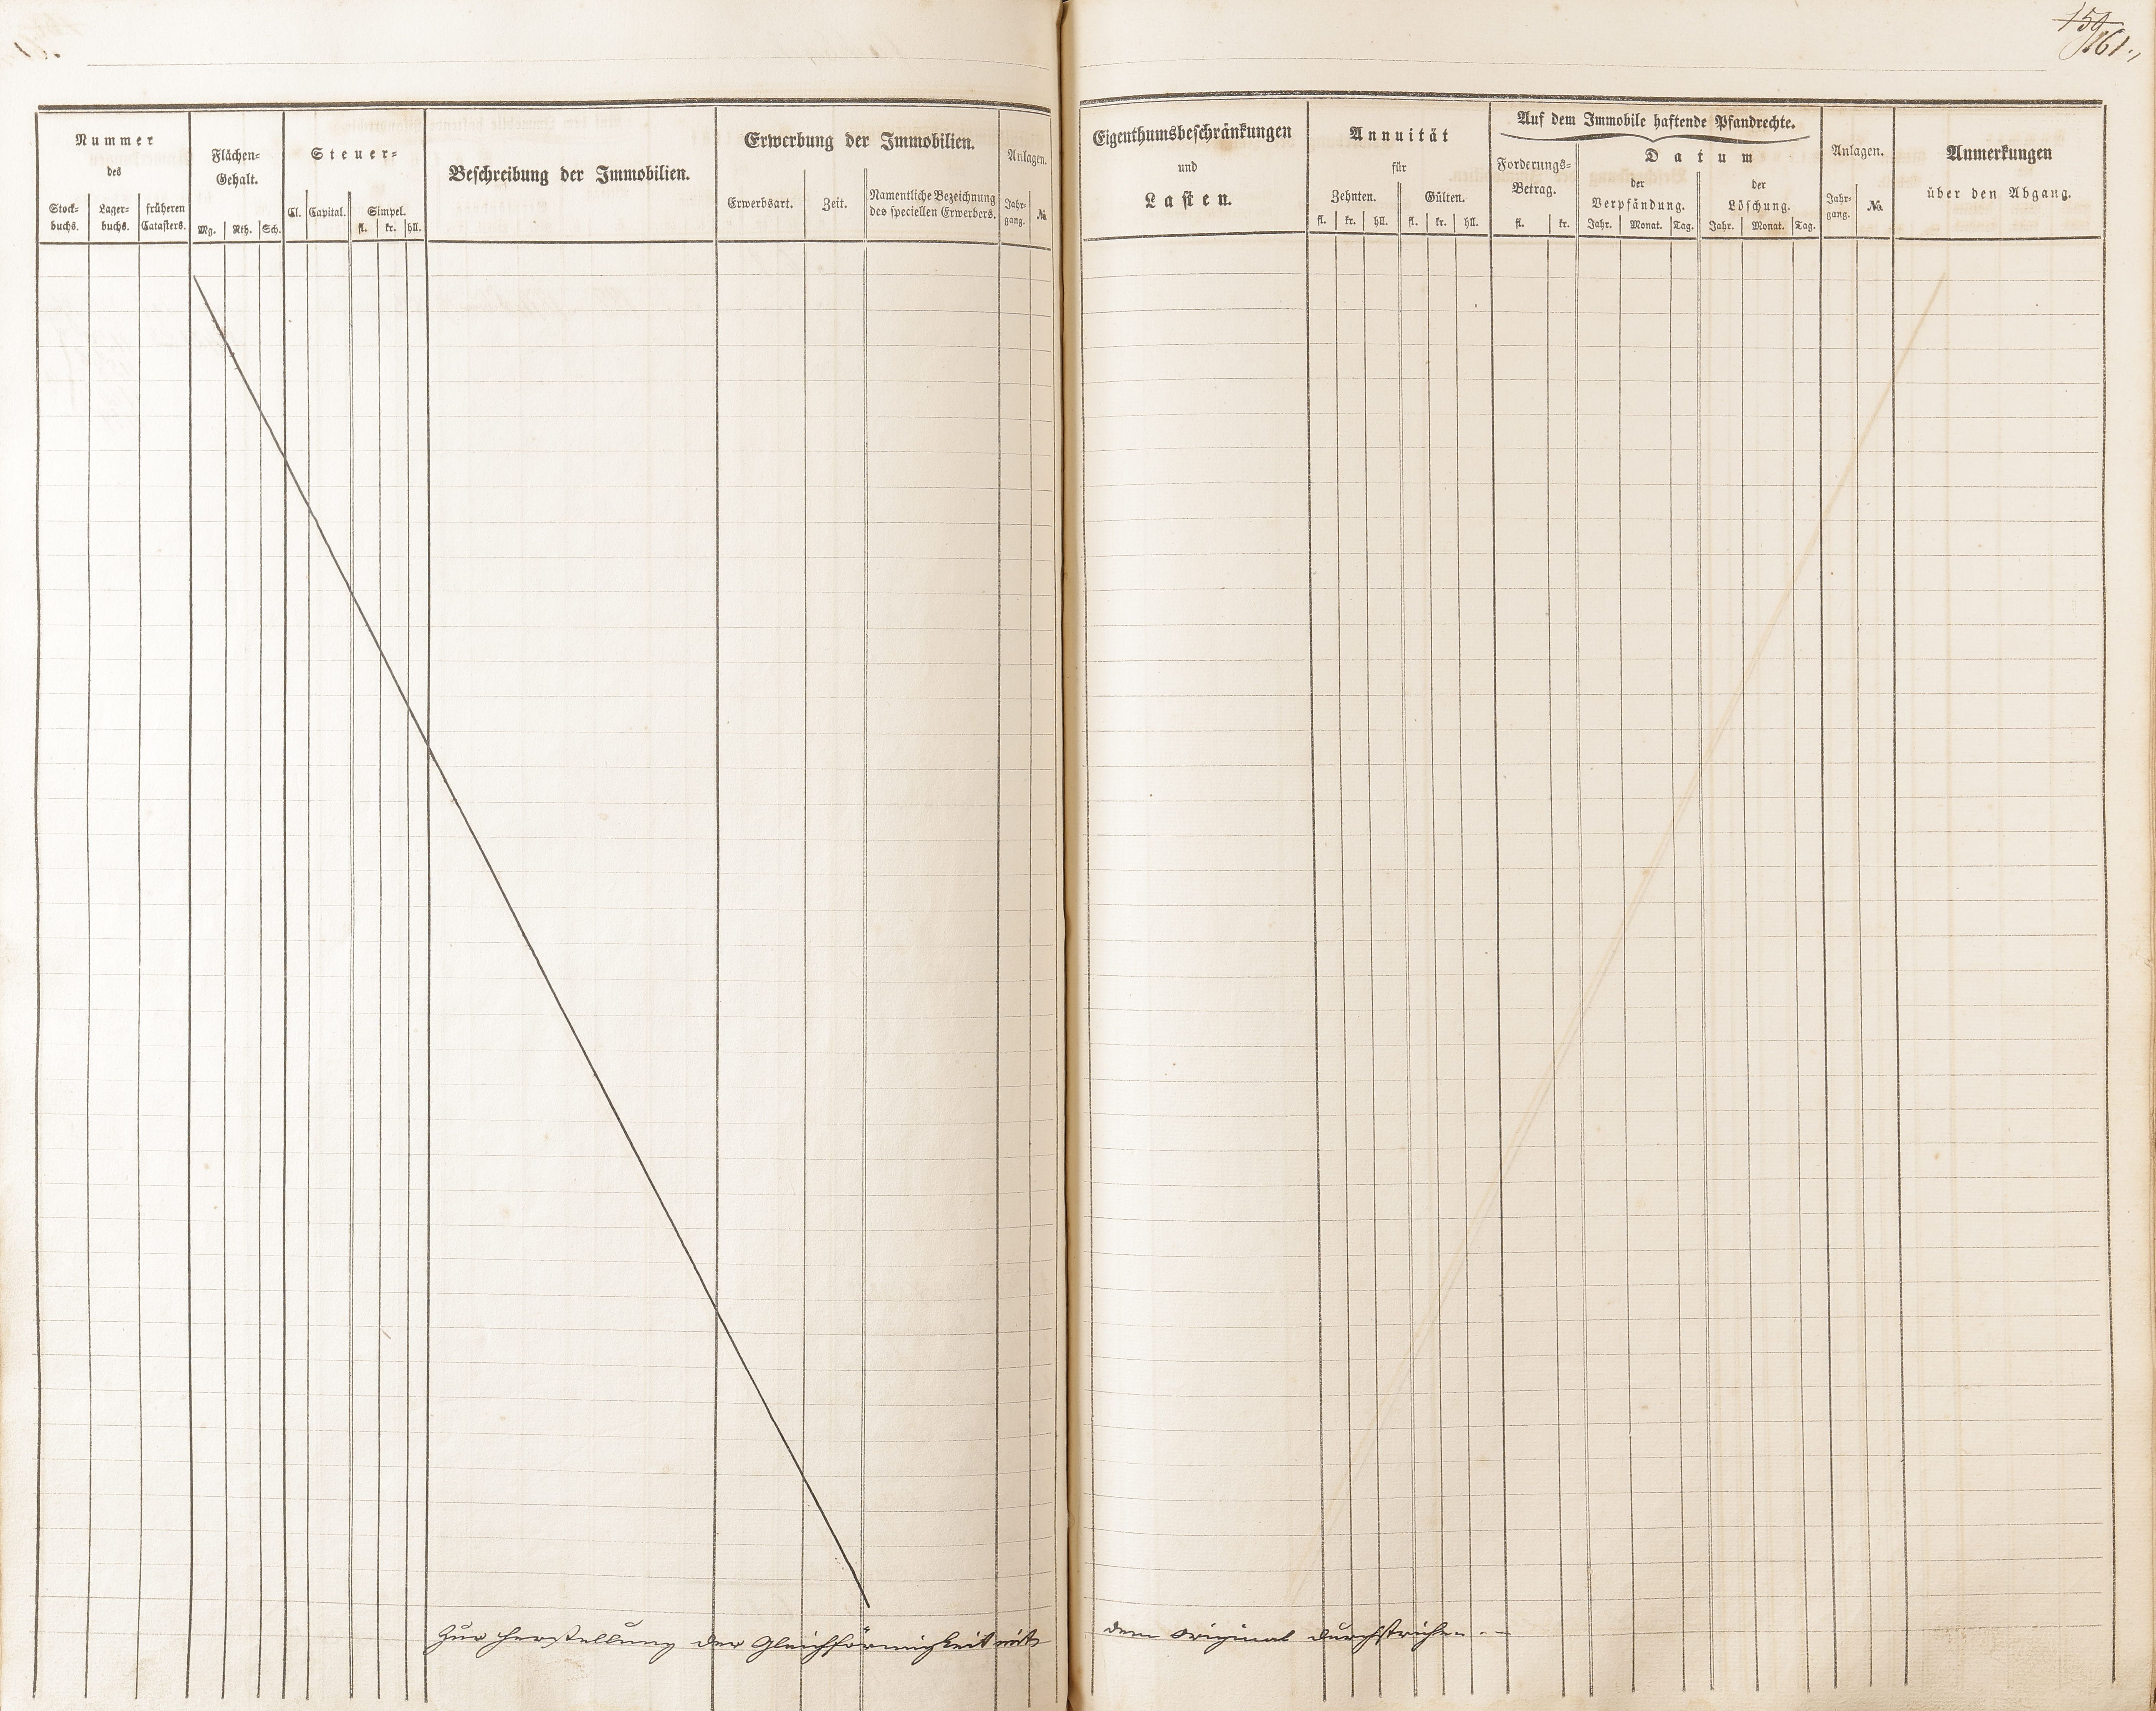 159
161.
Nummer
des
Stock-
buchs.
Lager-
buchs.
früheren
Catasters.
Flächen-
Gehalt.
Mg.
Rth.
Sch.
Steuer-
Cl.
Capital.
Simpel.
fl.
kr.
hll.
Beschreibung der Immobilien.
Erwerbung der Immobilien.
Erwerbsart.
Zeit.
Namentliche Bezeichnung
des speciellen Erwerbers.
Anlagen.
Jahr-
gang.
№
Eigenthumsbeschränkungen
und
Lasten.
Annuität
für
Zehnten.
fl.
kr.
hll.
Gülten.
fl.
kr.
hll.
Auf dem Immobile haftende Pfandrechte.
Forderungs-
Betrag.
fl.
kr.
Datum
der
Verpfändung.
Jahr.
Monat.
Tag.
der
Löschung.
Jahr.
Monat.
Tag.
Anlagen.
Jahr-
gang.
№.
Anmerkungen
über den Abgang.
Zur Herstellung der Gleichförmigkeit mit dem Original durchstrichen.